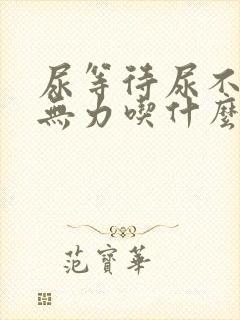 尿等待尿不
無力喫什麼
范寶華